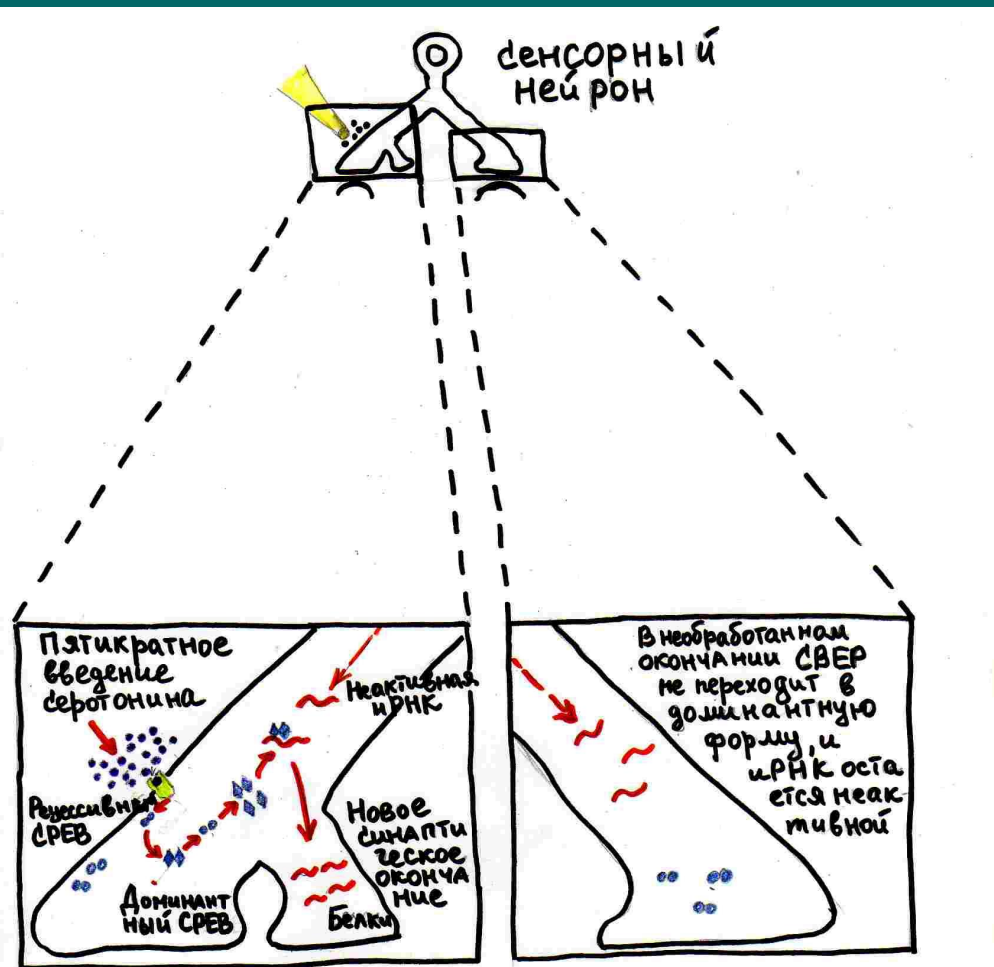 сенсорный
нейрон
Пятикратное
введение
серотонина
Неактивная
иРНК
Рецессивный
CPEB
Доминант
ный CPEB
Новое
синапти
ческое
оконча
ние
Белки
В необработанном
окончании СВЕР
не переходит в
доминантную
форму, и
иРНК оста
ется неак
тивной